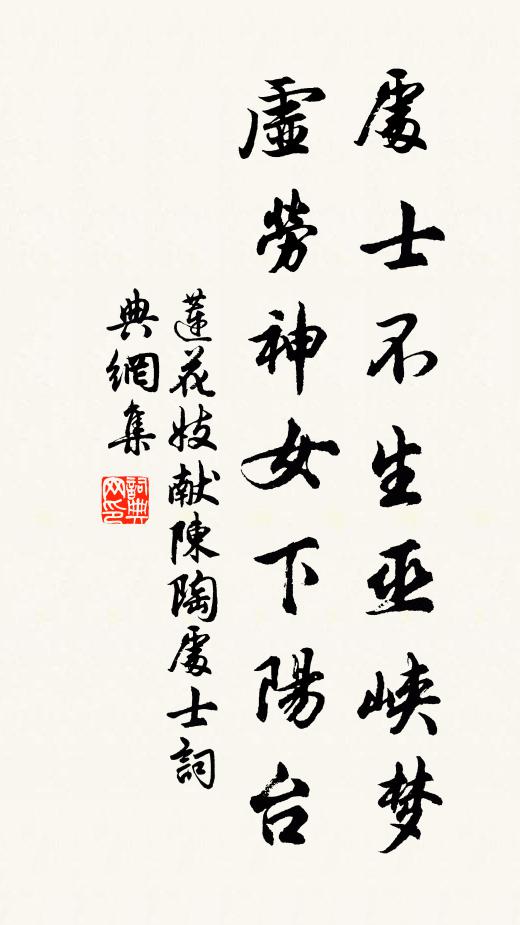 處士不生巫峽梦
虛勞神女下陽台
蓮花妓献陳陶處士詞
典網集
詞典
网印